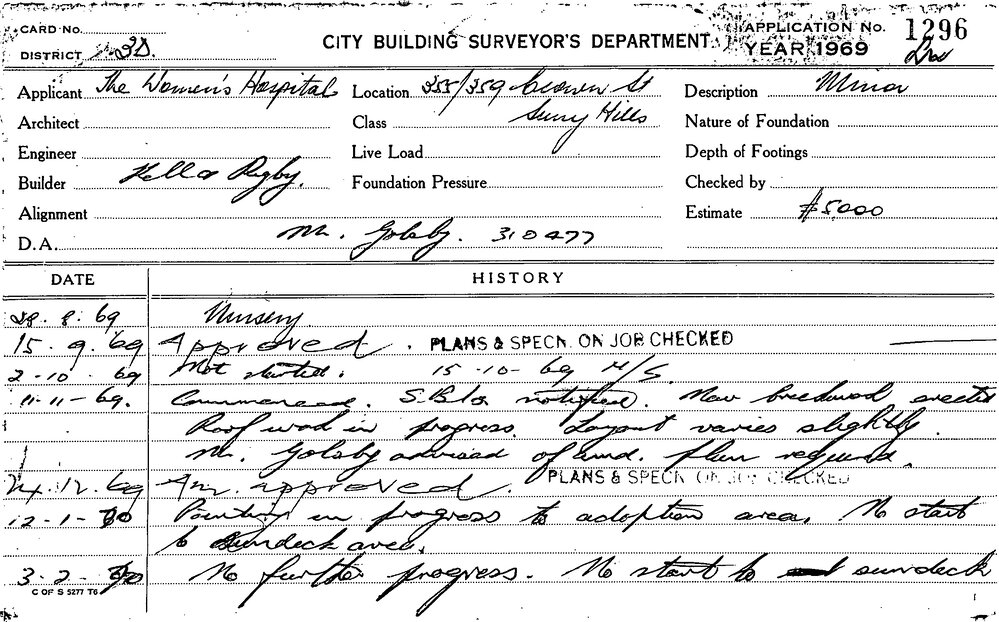 CARD No.
DISTRICT 3D.
CITY BUILDING SURVEYOR'S DEPARTMENT.
APPLICATION No. 1296
YEAR 1969
Applicant The Women's Hospital Location 355/359 Crown St Description Minor
Architect Class Surry Hills Nature of Foundation
Engineer Live Load Depth of Footings
Builder Kell & Rigby. Foundation Pressure Checked by
Alignment Estimate $5000
D.A. Mr. Golsby. 310477
DATE HISTORY
28. 8. 69 Nursery
15. 9. 69 Approved. PLANS & SPECN. ON JOB CHECKED
2-10-69 Not started. 15-10-69
11-11-69. Commenced. notified. New brickwork erected
Roof work in progress. Layout varies slightly.
Mr. Golsby advised of amd. plan required.
24.12.69 Am. approved. PLANS & SPECN ON JOB CHECKED
12-1-70 Painting in progress to adoption area. No start
to sundeck area.
3-2-70 No further progress. No start to sundeck
C OF S 5277 T6